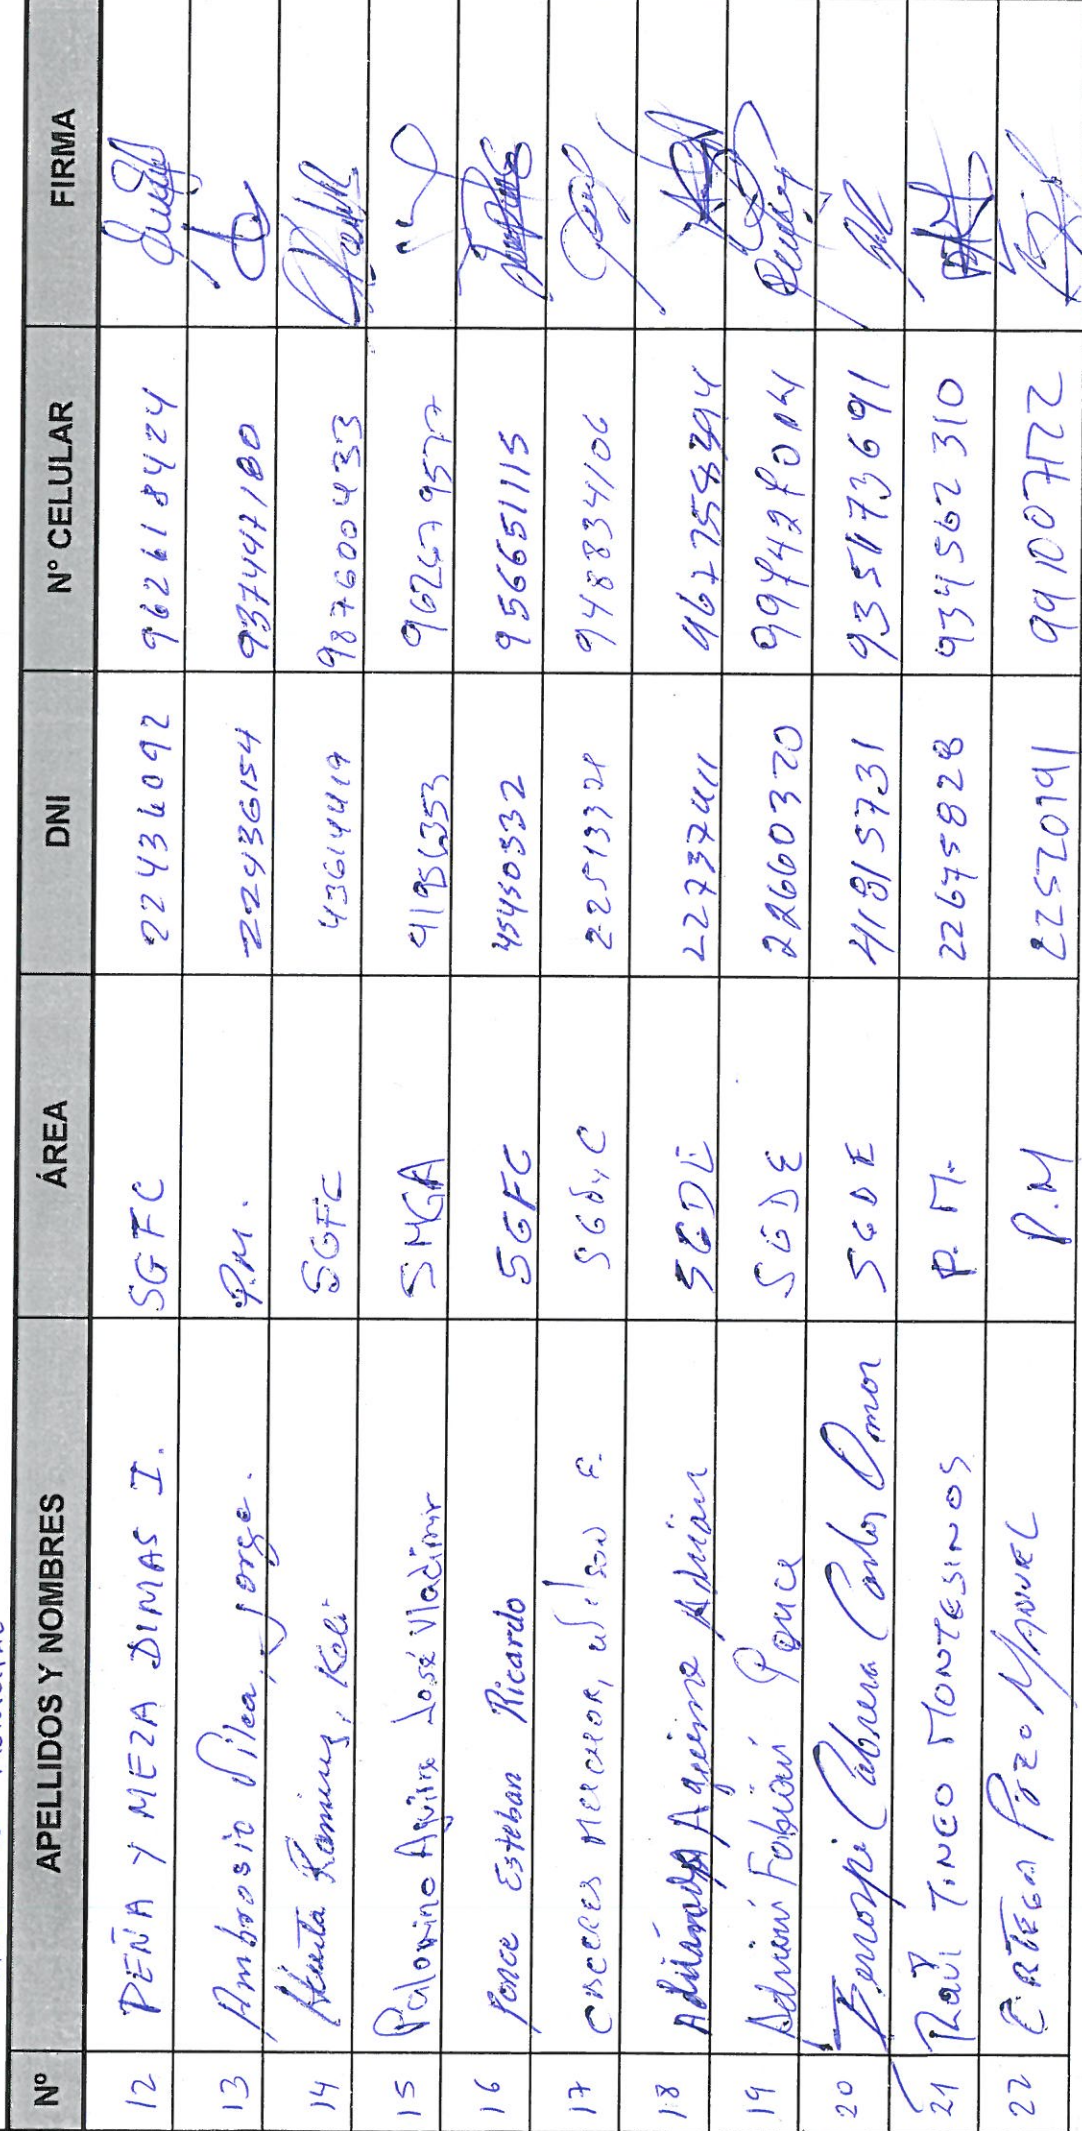 Nº APELLIDOS Y NOMBRES ÁREA DNI Nº CELULAR FIRMA
12 PEÑA Y MEZA DIMAS I. SGFC 22436092 962618424
13 Ambrosio Vilca, Jorge. P.M. 22436154 937447180
14 Ramirez, Keli SGFC 43614419 987600433
15 Palomino Aguirre José Vladimir SMGA 41956353 962679577
16 Ponce Esteban Ricardo SGFC 45450332 956651115
17 CACERES MELCHOR, Wilson F. 22513328 948834106
18 Aguirre Adrian SGDE 22737411 967758394
19 Fabián Ponce SGDE 22660320
20 Cabrera Carlos Omar SGDE 41815731 935173691
21 Raúl TINEO MONTESINOS P.M. 22675828 934562310
22 ORTEGA Pozo MANUEL P.M 22520191 991007722